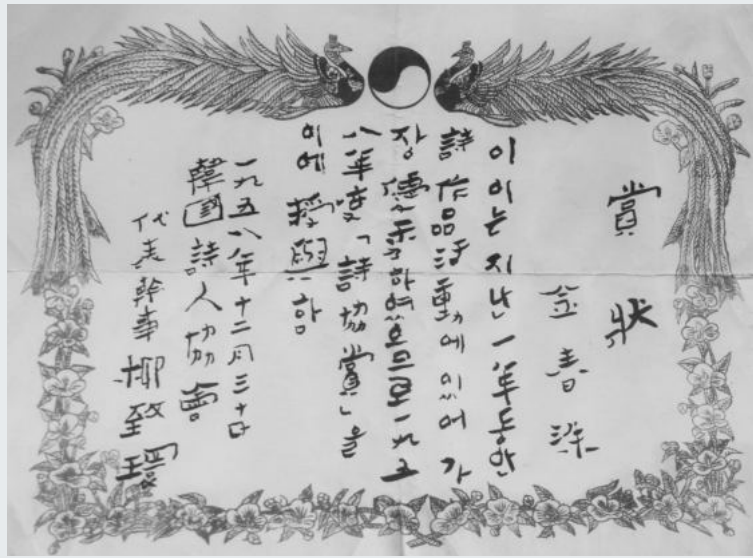 賞狀
金春洙
이 이는 지난 一年동안
詩作品活動에 있어 가
장 優秀하였으므로 一九五
八年度「詩協賞」을
이에 授與함
一九五八年十二月三十日
韓國詩人協會
代表幹事 柳致環